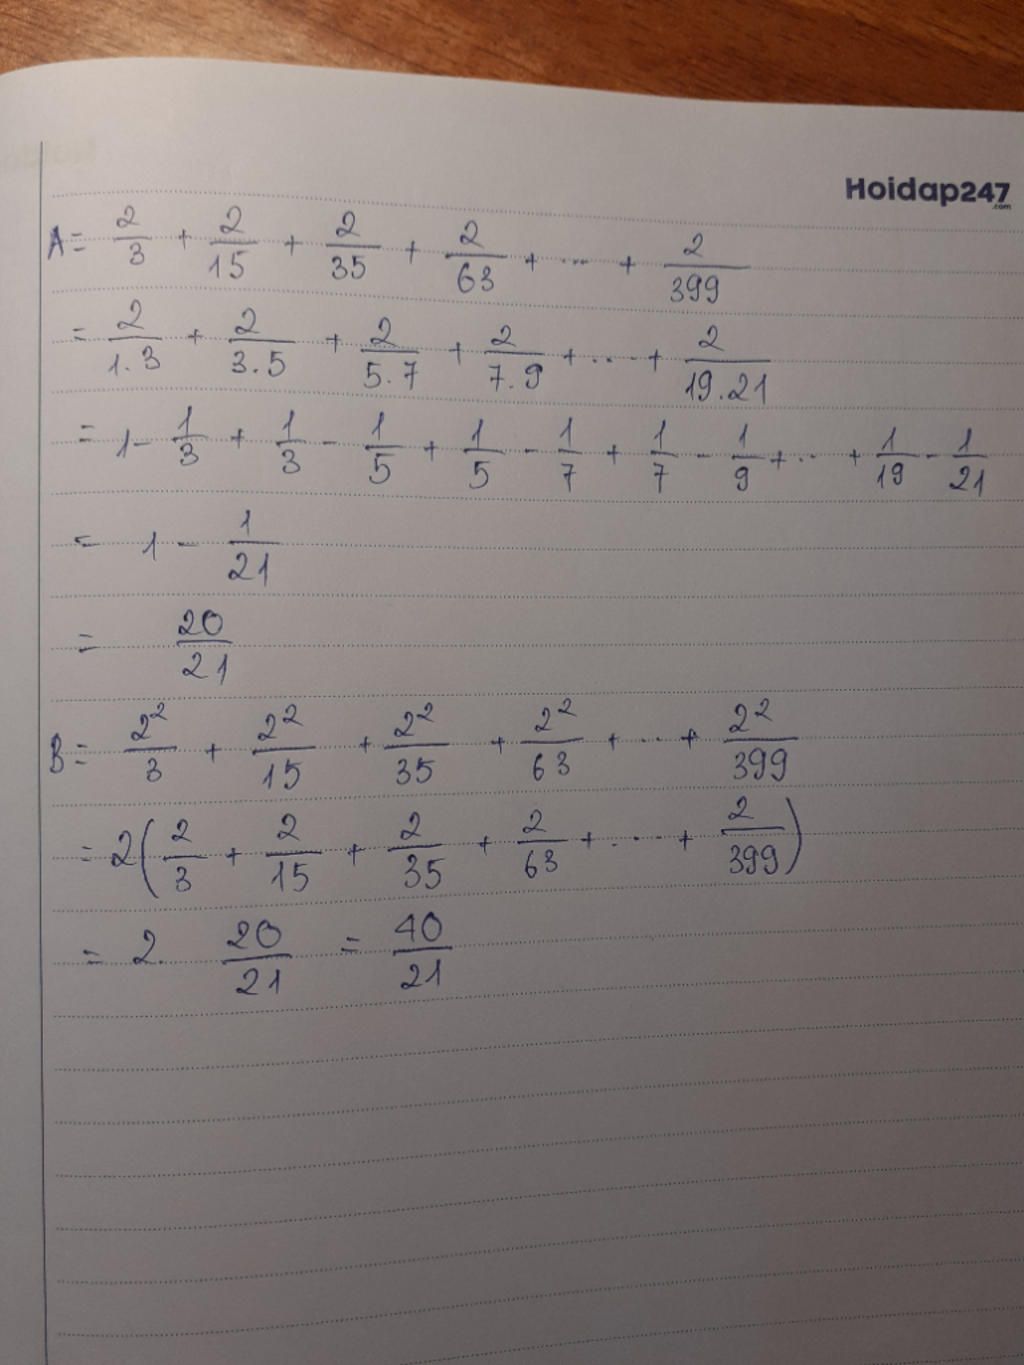 Hoidap247
.com
A = 2/3 + 2/15 + 2/35 + 2/63 + ... + 2/399
= 2/1.3 + 2/3.5 + 2/5.7 + 2/7.9 + .... + 2/19.21
= 1 - 1/3 + 1/3 - 1/5 + 1/5 - 1/7 + 1/7 - 1/9 + ... + 1/19 - 1/21
= 1 - 1/21
= 20/21
B = 2²/3 + 2²/15 + 2²/35 + 2²/63 + ... + 2²/399
= 2(2/3 + 2/15 + 2/35 + 2/63 + .... + 2/399)
= 2. 20/21 = 40/21